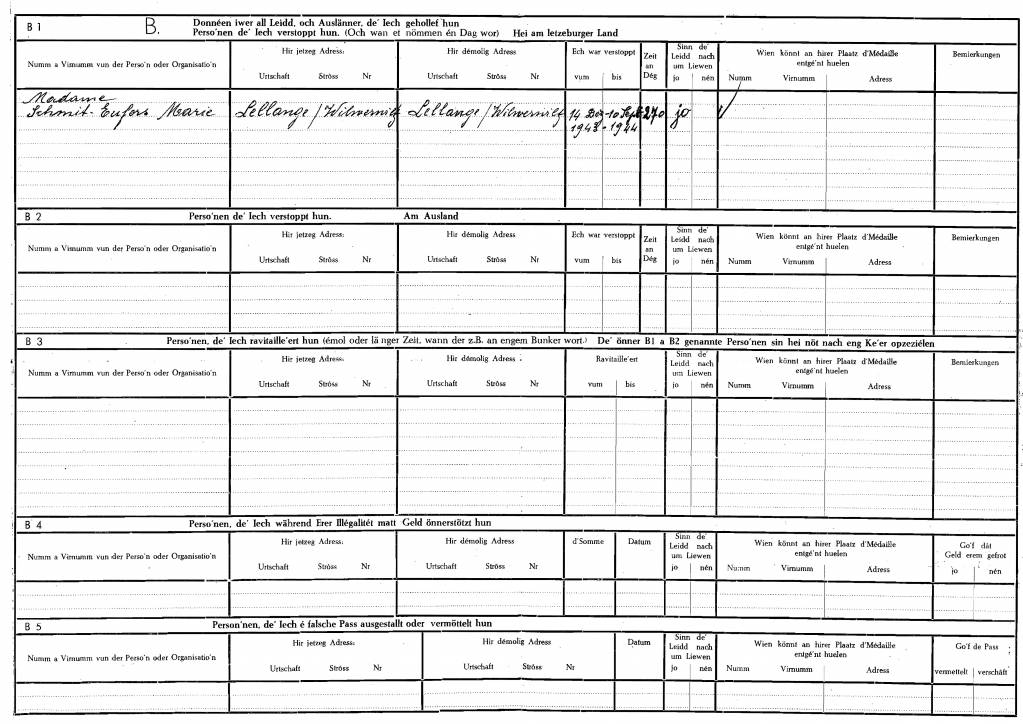 B 1 B. Donnéen iwer all Leidd, och Auslänner, de' Iech gehollef hun
Perso'nen de' Iech verstoppt hun. (Och wan et nömmen én Dag wor) Hei am letzeburger Land
Numm a Virnumm vun der Perso'n oder Organisatio'n
Hir jetzeg Adress:
Urtschaft Ströss Nr
Hir démolig Adress
Urtschaft Ströss Nr
Ech war verstoppt
vum bis
Zeit
an
Dég
Sinn de'
Leidd nach
um Liewen
jo nén
Wien könnt an hirer Plaatz d'Médaille
entgé'nt huelen
Numm Virnumm Adress
Bemierkungen
Madame
Schmit- Eufers Marie Lellange / Wilwerwiltz Lellange / Wilwerwiltz 14 Dez - 10 Sept 270 jo
1943 - 1944
B 2 Perso'nen de' Iech verstoppt hun. Am Ausland
Numm a Virnumm vun der Perso'n oder Organisatio'n
Hir jetzeg Adress:
Urtschaft Ströss Nr
Hir démolig Adress
Urtschaft Ströss Nr
Ech war verstoppt
vum bis
Zeit
an
Dég
Sinn de'
Leidd nach
um Liewen
jo nén
Wien könnt an hirer Plaatz d'Médaille
entgé'nt huelen
Numm Virnumm Adress
Bemierkungen
B 3 Perso'nen, de' Iech ravitaille'ert hun (émol oder länger Zeit, wann der z.B. an engem Bunker wort.) De' önner B1 a B2 genannte Perso'nen sin hei nöt nach eng Ke'er opzeziélen
Numm a Virnumm vun der Perso'n oder Organisatio'n
Hir jetzeg Adress:
Urtschaft Ströss Nr
Hir démolig Adress :
Urtschaft Ströss Nr
Ravitaille'ert
vum bis
Sinn de'
Leidd nach
um Liewen
jo nén
Wien könnt an hirer Plaatz d'Médaille
entgé'nt huelen
Numm Virnumm Adress
Bemierkungen
B 4 Perso'nen, de' Iech während Erer Illégalitét matt Geld önnerstötzt hun
Numm a Virnumm vun der Perso'n oder Organisatio'n
Hir jetzeg Adress:
Urtschaft Ströss Nr
Hir démolig Adress
Urtschaft Ströss Nr
d'Somme
Datum
Sinn de'
Leidd nach
um Liewen
jo nén
Wien könnt an hirer Plaatz d'Médaille
entgé'nt huelen
Numm Virnumm Adress
Go'f dát
Geld erem gefrot
jo nén
B 5 Person'nen, de' Iech é falsche Pass ausgestallt oder vermöttelt hun
Numm a Virnumm vun der Perso'n oder Organisatio'n
Hir jetzeg Adress:
Urtschaft Ströss Nr
Hir démolig Adress
Urtschaft Ströss Nr
Datum
Sinn de'
Leidd nach
um Liewen
jo nén
Wien könnt an hirer Plaatz d'Médaille
entgé'nt huelen
Numm Virnumm Adress
Go'f de Pass
vermettelt verschäft